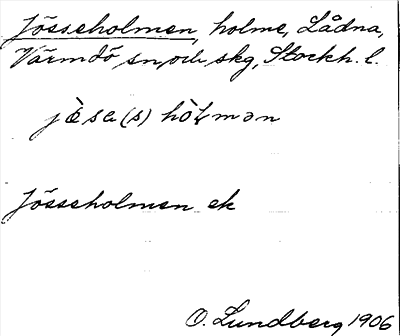 Jösseholmen, holme, Lådna,
Värmdö sn, och skg, Stockh. l.
jèsa(s) hòɫmən
Jösseholmen ek
O. Lundberg 1906